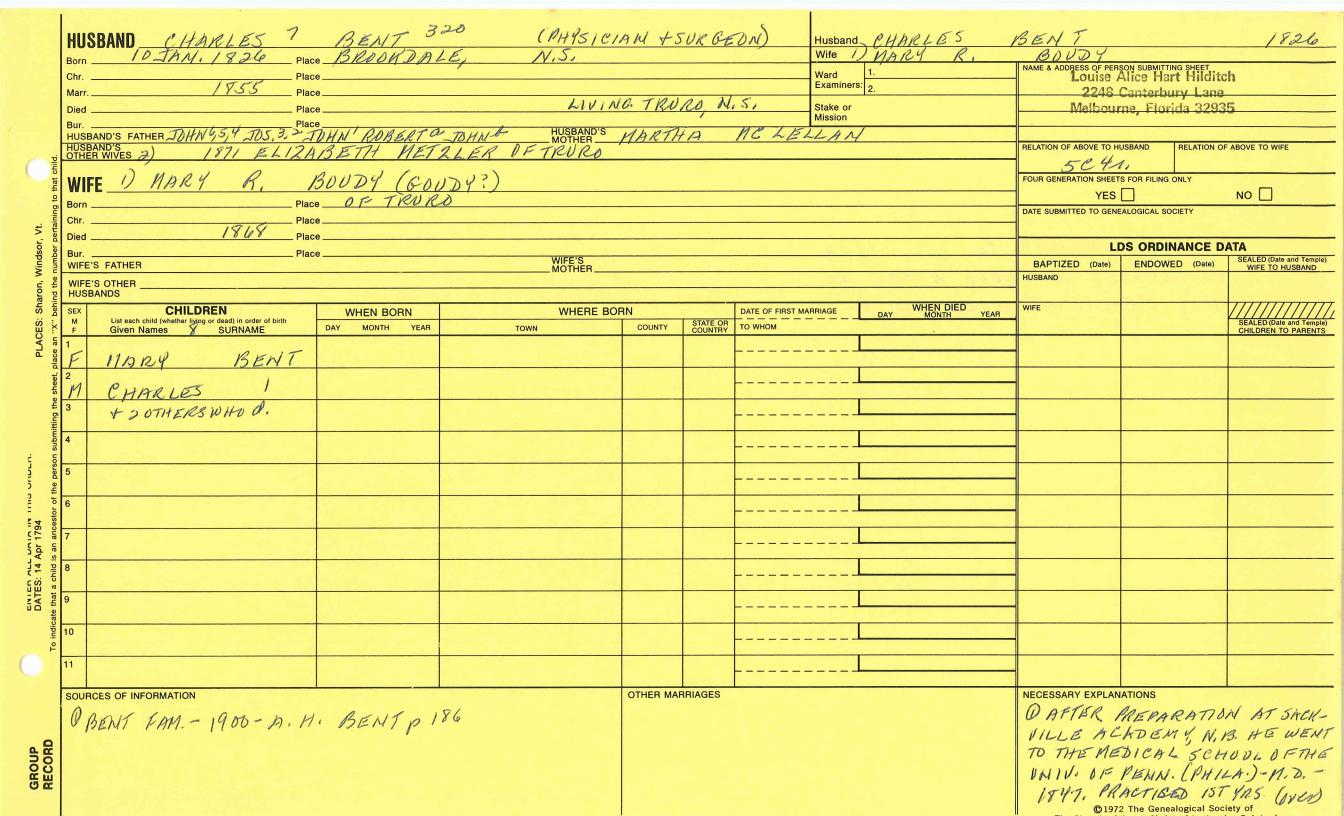 HUSBAND CHARLES 7 BENT 320 (PHYSICIAN + SURGEON)
Born 10 JAN. 1826 Place BROOKDALE, N.S.
Chr. Place
Marr. 1855 Place
Died Place LIVING TRURO, N.S.
Bur. Place
HUSBAND'S FATHER JOHN 6,5,4 JOS, 3, 2 JOHN1 ROBERTa JOHNb HUSBAND'S MOTHER MARTHA MCLELLAN
HUSBAND'S OTHER WIVES 2) 1871 ELIZABETH METZLER OF TRURO
WIFE 1) MARY R. BOUDY (GOUDY?)
Born Place OF TRURO
Chr. Place
Died 1868 Place
Bur. Place
WIFE'S FATHER WIFE'S MOTHER
WIFE'S OTHER HUSBANDS
Husband CHARLES BENT 1826
Wife 1) MARY R. BOUDY
Ward Examiners: 1. 2.
Stake or Mission
NAME & ADDRESS OF PERSON SUBMITTING SHEET
Louise Alice Hart Hilditch
2248 Canterbury Lane
Melbourne, Florida 32935
RELATION OF ABOVE TO HUSBAND RELATION OF ABOVE TO WIFE
5C 4r.
FOUR GENERATION SHEETS FOR FILING ONLY
YES NO
DATE SUBMITTED TO GENEALOGICAL SOCIETY
LDS ORDINANCE DATA
BAPTIZED (Date) ENDOWED (Date) SEALED (Date and Temple) WIFE TO HUSBAND
HUSBAND
WIFE
SEALED (Date and Temple) CHILDREN TO PARENTS
SEX M F
CHILDREN
List each child (whether living or dead) in order of birth
Given Names 8 SURNAME
WHEN BORN
DAY MONTH YEAR
WHERE BORN
TOWN COUNTY STATE OR COUNTRY
DATE OF FIRST MARRIAGE
TO WHOM
WHEN DIED
DAY MONTH YEAR
1 F MARY BENT
2 M CHARLES
3 + 2 OTHERS WHO d.
4
5
6
7
8
9
10
11
SOURCES OF INFORMATION
① BENT FAM. - 1900 - A. H. BENT p 186
OTHER MARRIAGES
NECESSARY EXPLANATIONS
① AFTER PREPARATION AT SACK-
VILLE ACADEMY, N.B. HE WENT
TO THE MEDICAL SCHOOL OF THE
UNIV. OF PENN. (PHILA.) - M.D. -
1847. PRACTISED 1ST YRS (over)
©1972 The Genealogical Society of
PLACES: Sharon, Windsor, Vt.
To indicate that a child is an ancestor of the person submitting the sheet, place an "X" behind the number pertaining to that child.
ENTER ALL DATA IN THIS ORDER:
DATES: 14 Apr 1794
GROUP RECORD